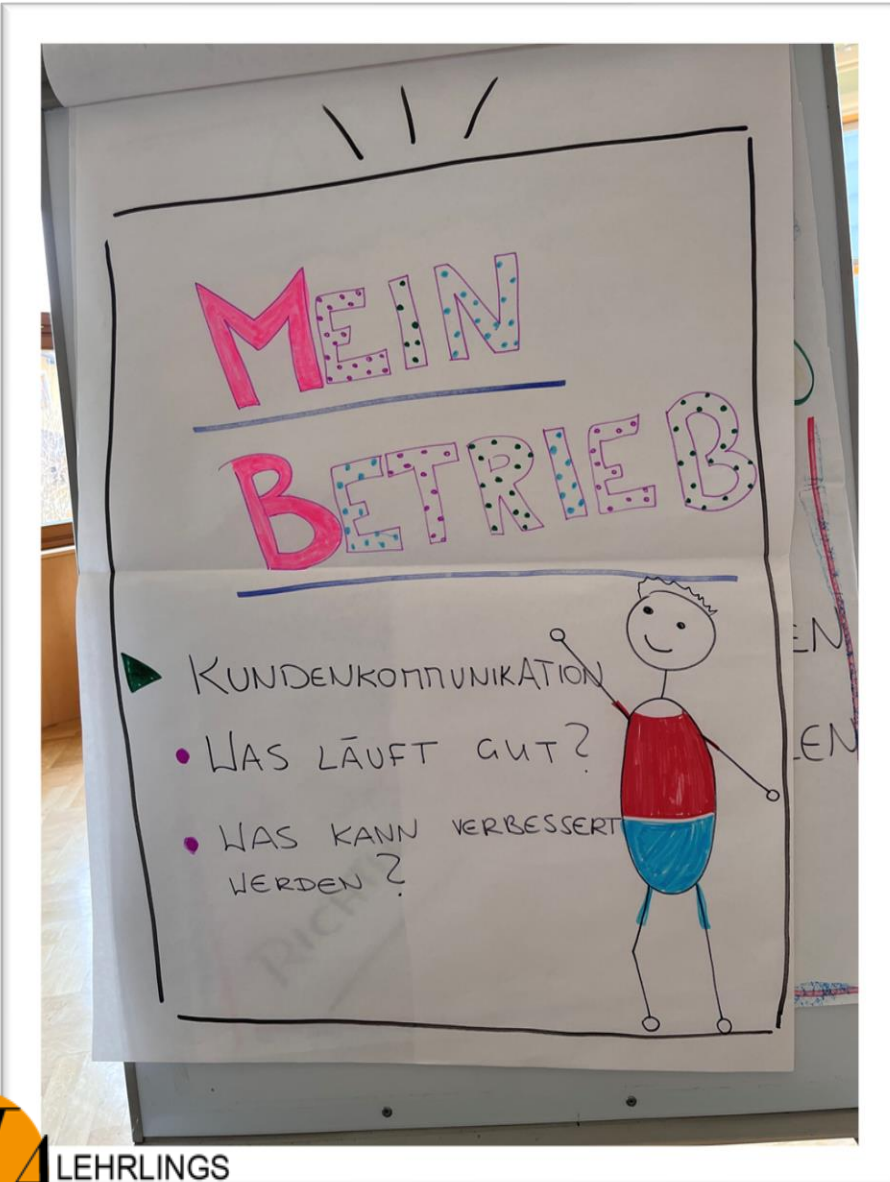 MEIN
BETRIEB
KUNDENKOMMUNIKATION
WAS LÄUFT GUT?
WAS KANN VERBESSERT
WERDEN?
EN
EN
LEHRLINGS